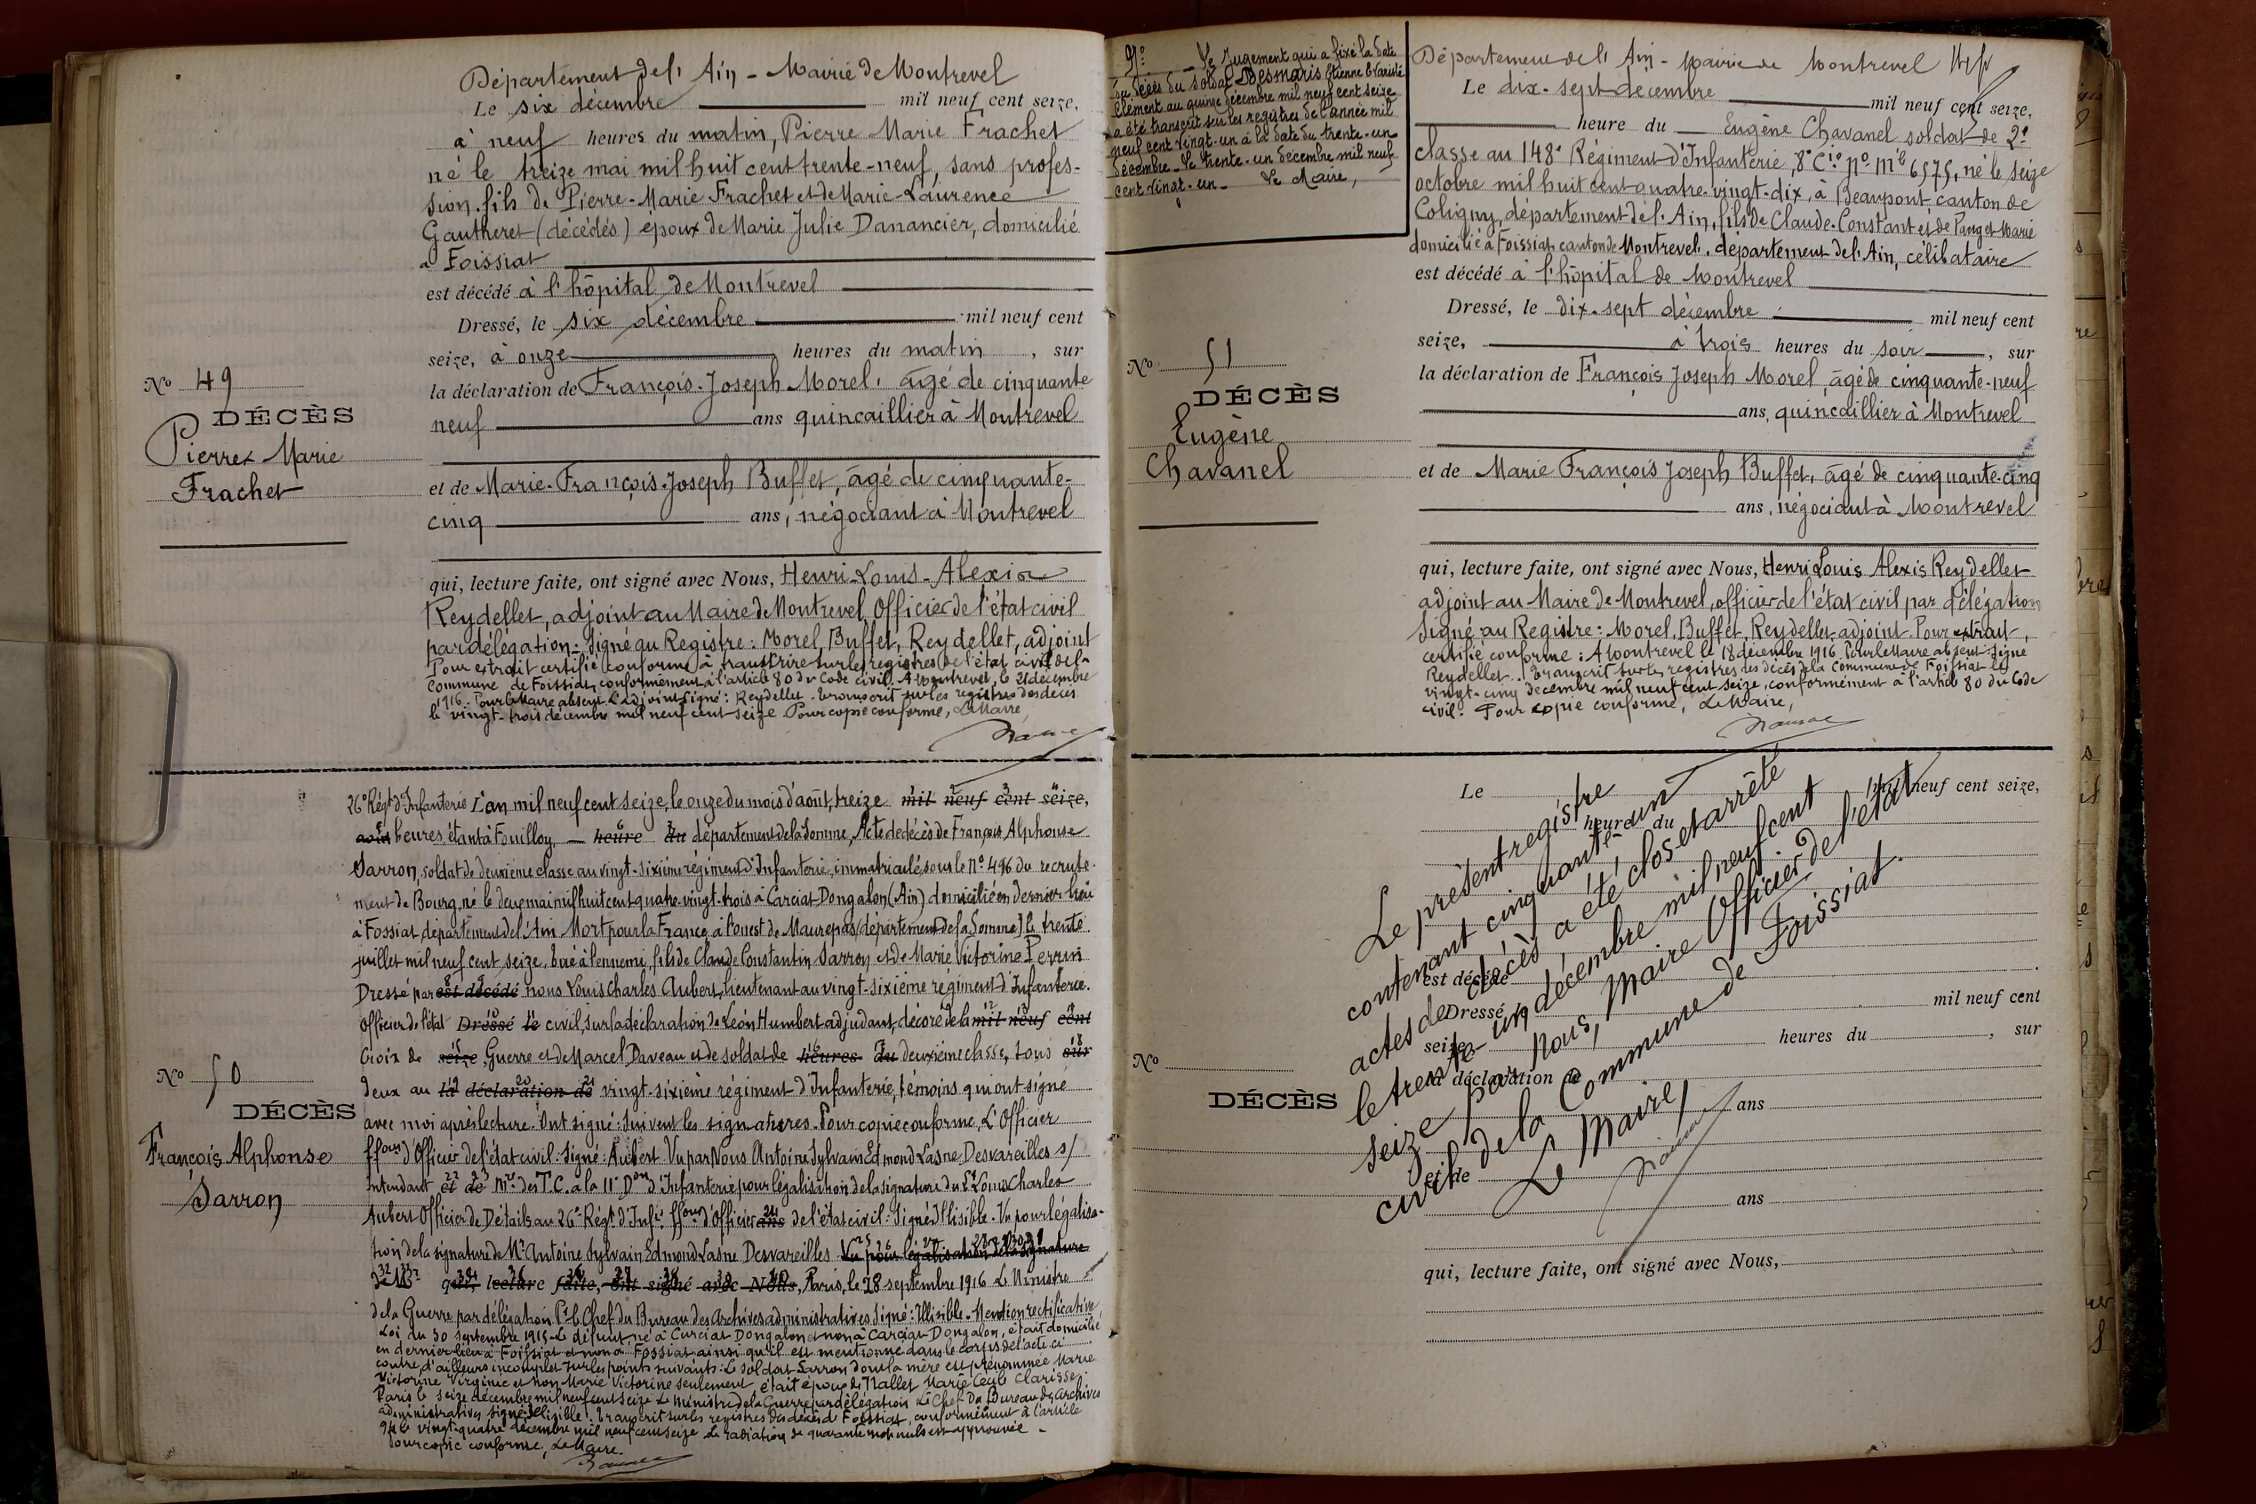 Département de l'Ain - Mairie de Montrevel
Le six décembre mil neuf cent seize,
à neuf heures du matin, Pierre Marie Frachet
né le treize mai mil huit cent trente-neuf, sans profes-
sion, fils de Pierre-Marie Frachet et de Marie-Laurence
Gautheret (décédés) époux de Marie Julie Danancier, domicilié
à Foissiat
est décédé à l'hôpital de Montrevel
Dressé, le six décembre mil neuf cent
seize, à onze heures du matin, sur
la déclaration de François-Joseph Morel, âgé de cinquante
neuf ans quincaillier à Montrevel
No 49
DÉCÈS
Pierre Marie
Frachet
et de Marie-François-Joseph Buffet, âgé de cinquante-
cinq ans, négociant à Montrevel
qui, lecture faite, ont signé avec Nous, Henri-Louis-Alexis
Reydellet, adjoint au Maire de Montrevel, Officier de l'état civil
par délégation. Signé au Registre: Morel, Buffet, Reydellet, adjoint
Pour extrait certifié conforme à transcrire sur les registres de l'état civil de la
Commune de Foissiat, conformément à l'article 80 du Code civil. A Montrevel, le 21 décembre
1916. Pour le Maire absent L'adjoint signé: Reydellet. Transcrit sur les registres des décès
le vingt-trois décembre mil neuf cent seize. Pour copie conforme, Le Maire,
26e Régt d'Infanterie L'an mil neuf cent seize, le onze du mois d'août, treize mil neuf cent seize,
heures, étant à Fouilloy, heure du département de la Somme, Acte de décès de François Alphonse
Sarron, soldat de deuxième classe au vingt-sixième régiment d'Infanterie, immatriculé sous le No 496 du recrute-
ment de Bourg, né le deux mai mil huit cent quatre-vingt-trois à Carciat Dongalon (Ain) domicilié en dernier lieu
à Fossiat, département de l'Ain. Mort pour la France, à l'ouest de Maurepas (département de la Somme) le trente
juillet mil neuf cent seize, tué à l'ennemi, fils de Claude Constantin Sarron et de Marie Victorine Perrin
Dressé par est décédé nous Louis Charles Aubert, lieutenant au vingt-sixième régiment d'Infanterie.
Officier de l'état Dressé le civil, sur la déclaration de Léon Humbert adjudant, décoré de la mil neuf cent
Croix de seize Guerre et de Marcel Daveau et de soldat de heures du deuxième classe, tous sur
deux au la déclaration de vingt-sixième régiment d'Infanterie, témoins qui ont signé
avec moi après lecture. Ont signé: Suivent les signatures. Pour copie conforme, L'Officier
ffons d'Officier de l'état civil: Signé: Aubert. Vu par Nous Antoine Sylvain Edmond Lasne Desvareilles s/
Intendant et de Mre des T.C. à la 11e Don d'Infanterie pour légalisation de la signature du Lt Louis Charles
Aubert Officier de Détails au 26e Régt d'Infie ffons d'Officier ans de l'état civil: Signé Illisible. Vu pour légalisa-
tion de la signature de Mr Antoine Sylvain Edmond Lasne Desvareilles Vu pour légalisation de la signature
de Mr qui, lecture faite, ont signé avec Nous, Paris, le 28 septembre 1916 Le Ministre
de la Guerre par délégation Pr le Chef du Bureau des Archives administratives Signé: Illisible. Mention rectificative
Loi du 30 septembre 1915. Le défunt, né à Curciat Dongalon et non à Carciat Dongalon, était domicilié
en dernier lieu à Foissiat et non à Fossiat ainsi qu'il est mentionné dans le corps de l'acte ci
contre, d'ailleurs incomplet sur les points suivants: Le soldat Sarron dont la mère est prénommée Marie
Victorine Virginie et non Marie Victorine seulement était époux de Nallet Marie Cécile Clarisse.
Paris le seize décembre mil neuf cent seize Le Ministre de la Guerre par délégation Le Chef du Bureau des Archives
administratives signé: Illisible. Transcrit sur les registres des décès de Foissiat, conformément à l'article
94 le vingt-quatre décembre mil neuf cent seize La radiation de quarante mots nuls est approuvée.
Pour copie conforme, Le Maire.
No 50
DÉCÈS
François Alphonse
Sarron
No Le Jugement qui a fixé la date
du décès du soldat Desmaris Etienne Evariste
Clément au quinze décembre mil neuf cent seize
a été transcrit sur les registres de l'année mil
neuf cent vingt-un à la date du trente-un
décembre. Le trente-un décembre mil neuf
cent vingt-un. Le Maire,
Département de l'Ain - Mairie de Montrevel
Le dix-sept décembre mil neuf cent seize,
heure du Eugène Chavanel soldat de 2e
classe au 148e Régiment d'Infanterie, 8e Cie No Mle 6575, né le seize
octobre mil huit cent quatre-vingt-dix, à Beaupont canton de
Coligny, département de l'Ain, fils de Claude-Constant et de Panget Marie
domicilié à Foissiat, canton de Montrevel, département de l'Ain, célibataire
est décédé à l'hôpital de Montrevel
Dressé, le dix-sept décembre mil neuf cent
seize, à trois heures du soir, sur
la déclaration de François Joseph Morel, âgé de cinquante-neuf
ans, quincaillier à Montrevel
No 51
DÉCÈS
Eugène
Chavanel
et de Marie François Joseph Buffet, âgé de cinquante-cinq
ans, négociant à Montrevel
qui, lecture faite, ont signé avec Nous, Henri Louis Alexis Reydellet
adjoint au Maire de Montrevel, officier de l'état civil par délégation
Signé au Registre: Morel, Buffet, Reydellet, adjoint. Pour extrait,
certifié conforme: A Montrevel le 18 décembre 1916. Pour le Maire absent Signé
Reydellet. Transcrit sur les registres des décès de la Commune de Foissiat le
vingt-cinq décembre mil neuf cent seize, conformément à l'article 80 du Code
civil. Pour copie conforme, Le Maire,
Le mil neuf cent seize,
heure du
est décédé
Dressé mil neuf cent
seize heures du , sur
la déclaration de
ans
et de
ans
qui, lecture faite, ont signé avec Nous,
No
DÉCÈS
Le présent registre
contenant cinquante-un
actes de décès a été clos et arrêté
le trente-un décembre mil neuf cent
seize par nous, Maire Officier de l'état
civil de la Commune de Foissiat.
Le Maire,